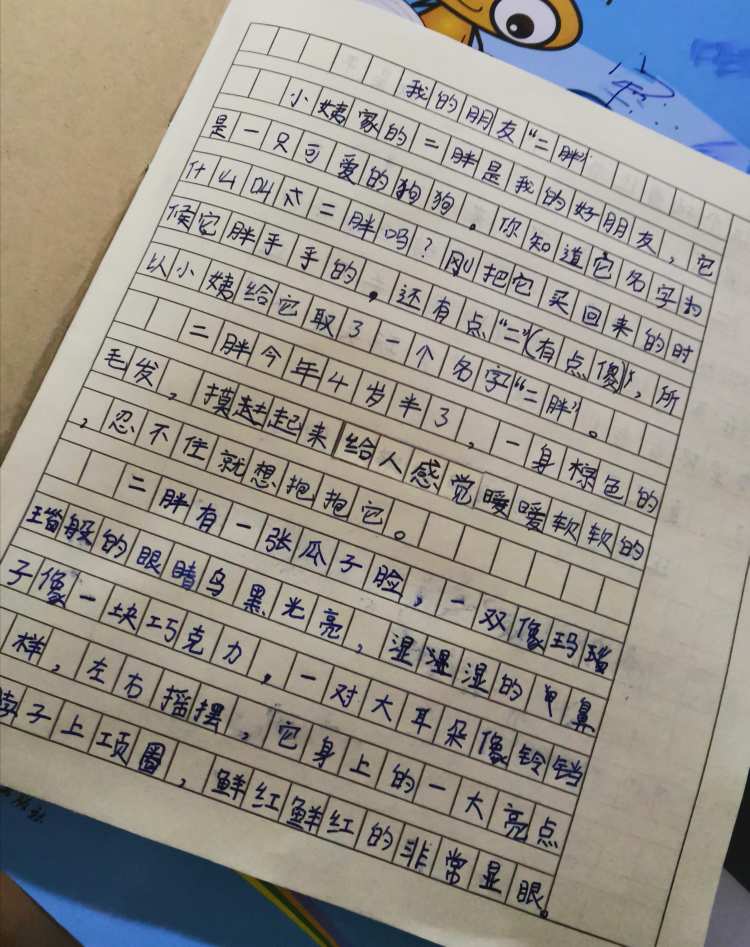 我的朋友“二胖”
小姨家的二胖是我的好朋友，它
是一只可爱的狗狗。你知道它名字为
什么叫二胖吗？刚把它买回来的时
候它胖手手的。还有点“二”(有点傻)”，所
以小姨给它取了一个名字“二胖”。
二胖今年4岁半了，一身棕色的
毛发，摸起起来给人感觉暖暖软软的
，忍不住就想抱抱它。
二胖有一张瓜子脸，一双像玛瑙
瑙般的眼睛乌黑光亮，湿湿湿的鼻
子像一块巧克力，一对大耳朵像铃铛
样，左右摇摆，它身上的一大亮点
子上项圈，鲜红鲜红的非常显眼。
版社